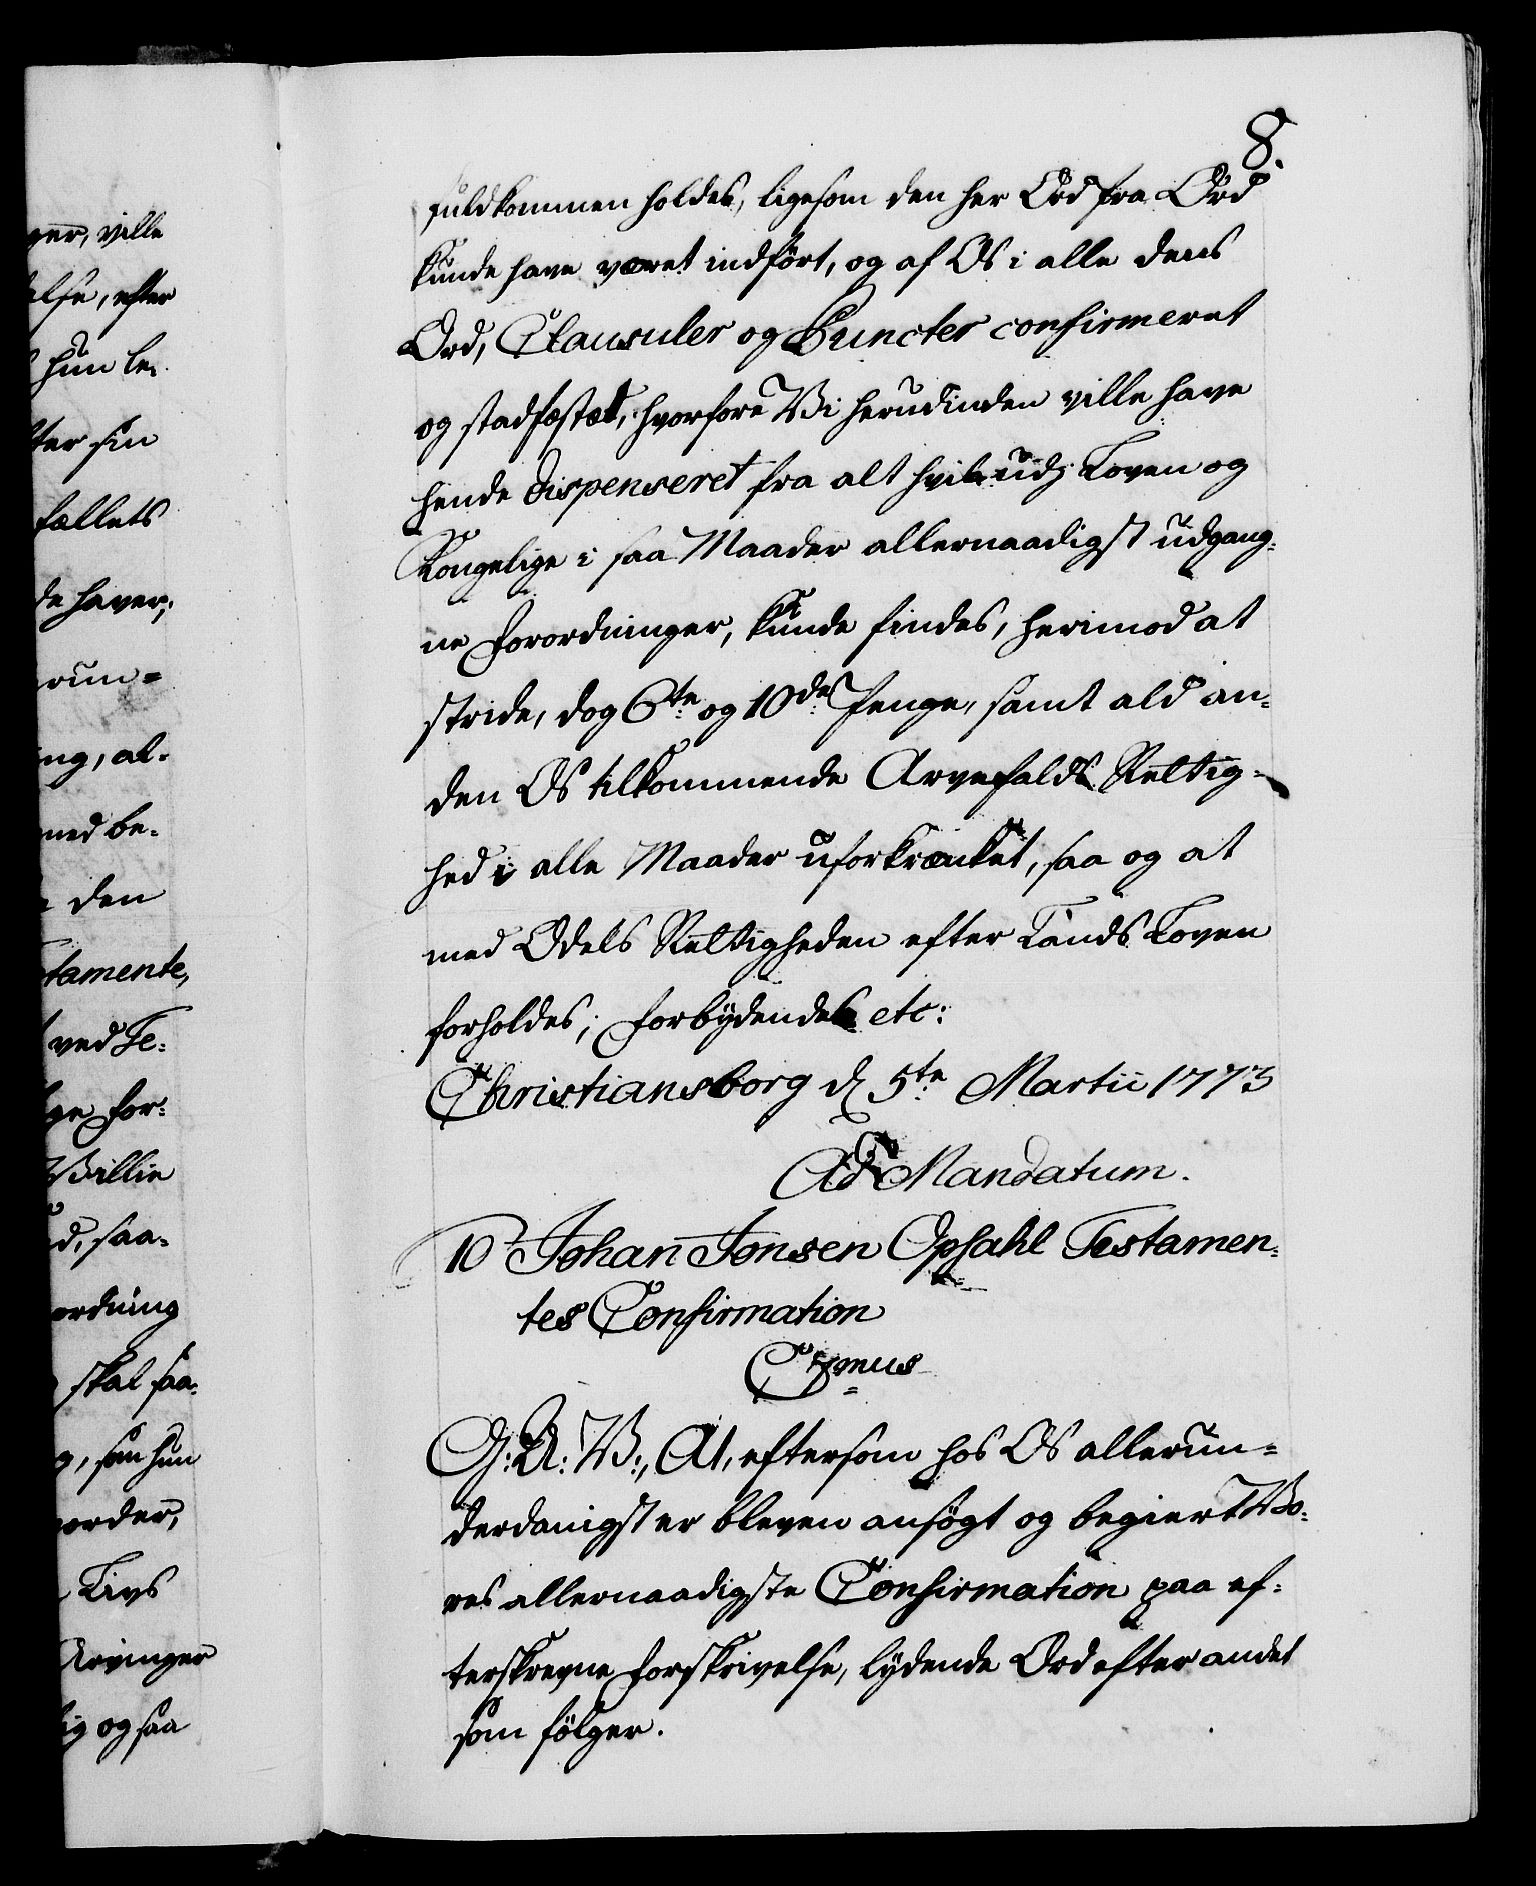 8.
fuldkommen holdes, ligesom den her Ord fra Ord
kunde have været indført, og af Os i alle dens
Ord, Clausuler og Puncter confirmeret
og stadfæstet, hvorfore Vi herudinden ville have
hende dispenseret fra alt hvis udj Loven og
Kongelige i saa Maader allernaadigst udgang-
ne Forordninger, kunde findes, herimod at
stride, dog 6te og 10de Penge, samt ald an-
den Os tilkommende Arvefalds Rettig-
hed i alle Maader uforkrænket, saa og at
med Odels Rettigheden efter Lands Loven
forholdes; Forbydendes etc:
Christiansborg d 5te Martii 1773
Ad Mandatum.
10 Johan Jonsen Opsahl Testamen-
tes Confirmation
G: A: V:, At, eftersom hos Os allerun-
derdanigst er bleven ansøgt og begiert Vo-
res allernaadigste Confirmation paa ef-
terskrevne Forskrivelse, lydende Ord efter andet
som følger.
ville
efter
hun
sin
fællets
haver;
al-
med be-
den
tamente,
ved Te-
for-
Villie
saa-
ordning
skal saa-
som hun
Livs
Arvinger
og saa